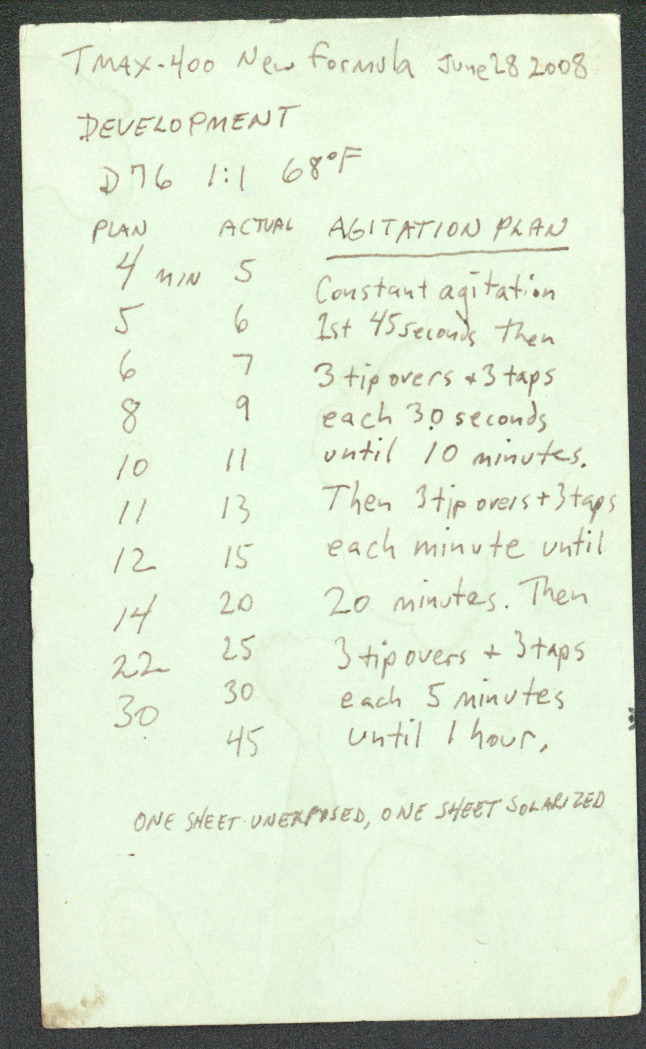 TMAX-400 New Formula June 28 2008
DEVELOPMENT
D76 1:1 68°F
PLAN ACTUAL AGITATION PLAN
4 MIN 5 Constant agitation
5 6 1st 45 seconds then
6 7 3 tip overs + 3 taps
8 9 each 30 seconds
10 11 until 10 minutes.
11 13 Then 3 tip overs + 3 taps
12 15 each minute until
14 20 20 minutes. Then
22 25 3 tip overs + 3 taps
30 30 each 5 minutes
45 until 1 hour.
ONE SHEET UNEXPOSED, ONE SHEET SOLARIZED